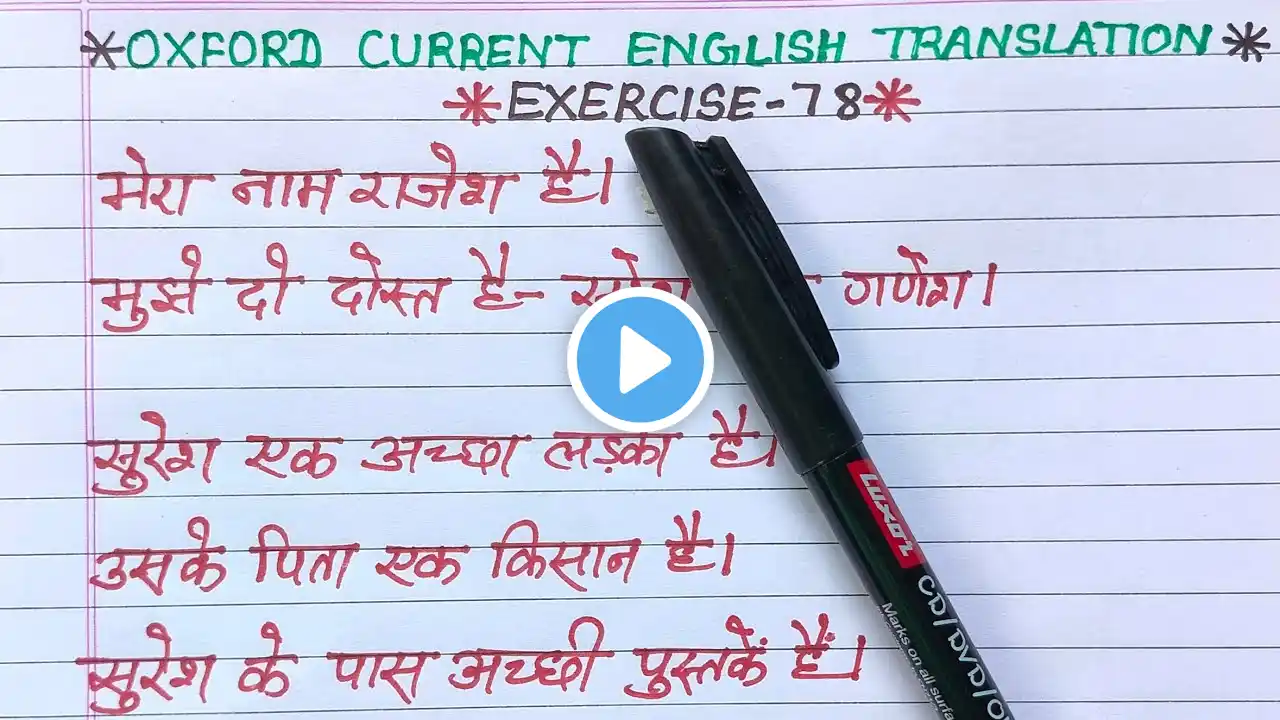 *OXFORD CURRENT ENGLISH TRANSLATION*
*EXERCISE-78*
मेरा नाम राजेश है।
मुझे दो दोस्त है- गणेश।
सुरेश एक अच्छा लड़का है।
उसके पिता एक किसान है।
सुरेश के पास अच्छी पुस्तकें हैं।
LUXOR
CD/DVD/
Marks on all